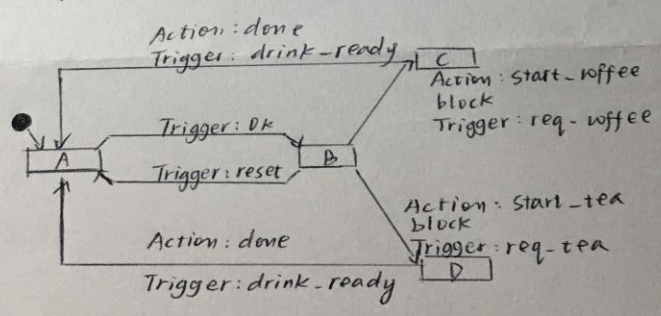 Action: done
Trigger: drink_ready
C
Action: start_coffee
block
Trigger: req_coffee
Trigger: OK
A
B
Trigger: reset
Action: start_tea
block
Trigger: req_tea
Action: done
D
Trigger: drink_ready